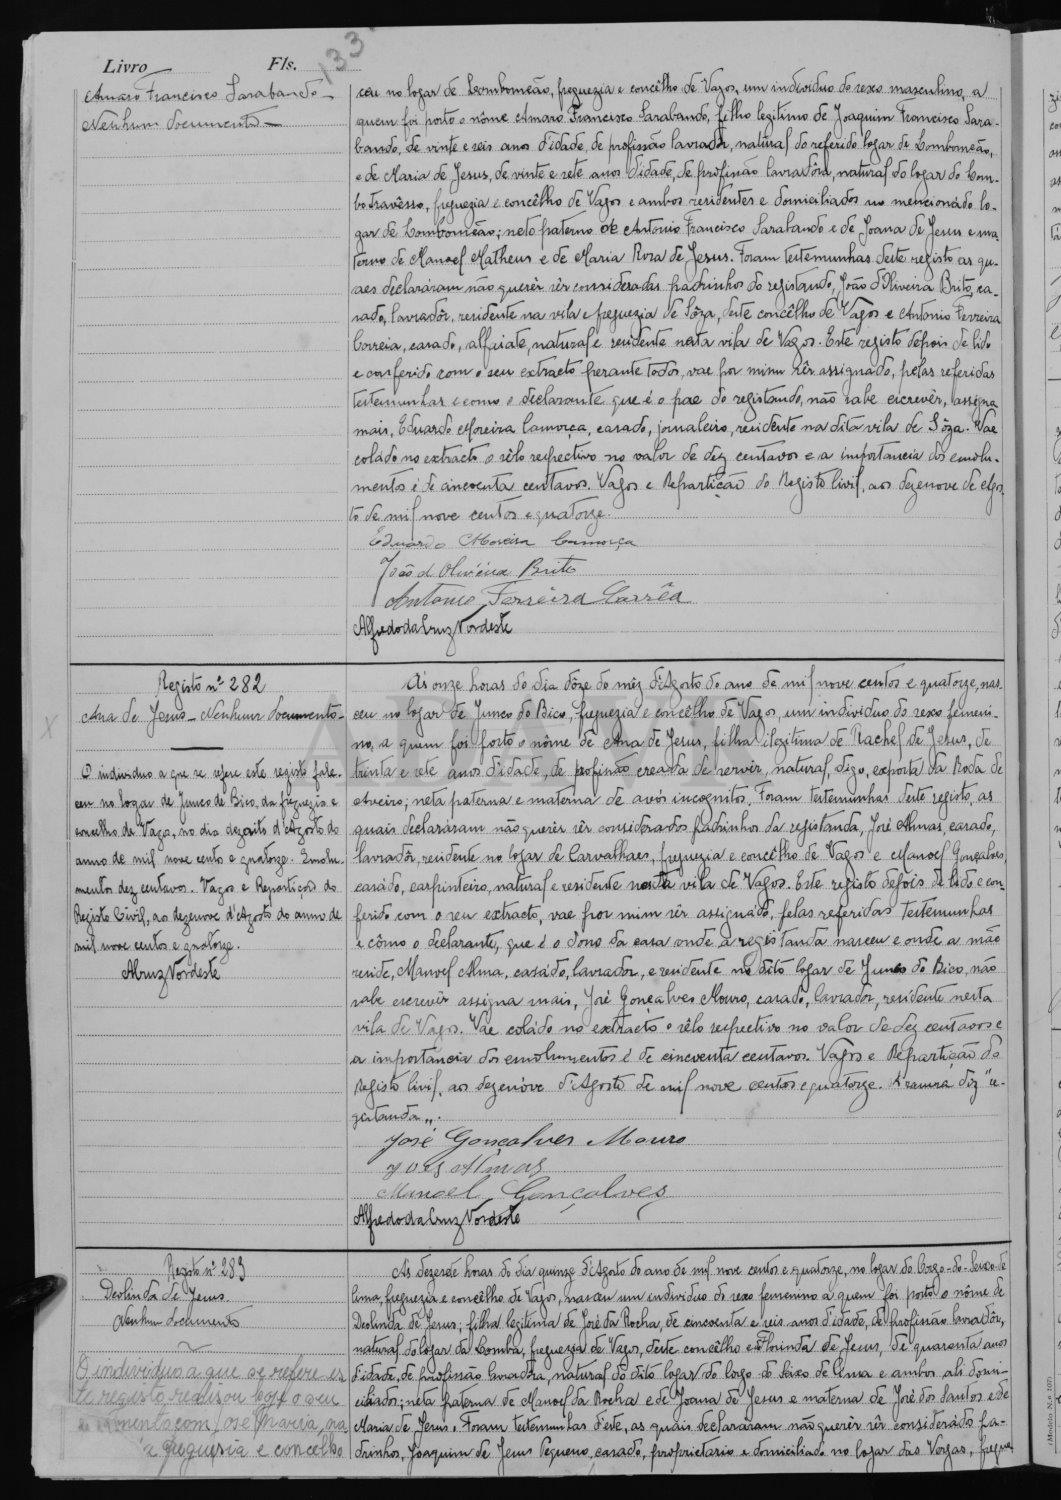 Livro Fls. 133
Amaro Francisco Sarabando
Nenhum documento
ceu no logar de Lombomeão, freguezia e concêlho de Vagos, um individuo do sexo masculino, a
quem foi posto o nôme Amaro Francisco Sarabando, filho legitimo de Joaquim Francisco Sara-
bando, de vinte e seis anos d'idade, de profissão lavradôr, natural do referido logar de Lombomeão,
e de Maria de Jesus, de vinte e sete anos d'idade, de profissão lavradôra, natural do logar do Lom-
bo travêsso, freguezia e concêlho de Vagos e ambos residentes e domiciliados no mencionado lo-
gar de Lombomeão; neto paterno de Antonio Francisco Sarabando e de Joana de Jesus e ma-
terno de Manoel Matheus e de Maria Rosa de Jesus. Foram testemunhas deste registo as qu-
aes declaráram não querêr sêr consideradas padrinhos do registando, João d'Oliveira Brito, ca-
sado, lavradôr, residente na vila e freguezia de Sôza, deste concêlho de Vagos e Antonio Ferreira
Correia, casado, alfaiate, natural e residente nesta vila de Vagos. Este registo depois de lido
e conferido com o seu extracto perante todos, vae por mim sêr assignado, pelas referidas
testemunhas e como o declarante que é o pae do registando, não sabe escrevêr, assigna
mais, Eduardo Moreira Camorça, casado, jornaleiro, residente na dita vila de Sôza. Vae
colado no extracto o sêlo respectivo no valor de dez centavos e a importancia dos emolu-
mentos é de cincoenta centavos. Vagos e Repartição do Registo Civil, aos dezenove de Agos-
to de mil nove centos e quatorze.
Eduardo Moreira Camorça
João d Oliveira Brito
Antonio Ferreira Corrêa
Alfredo da Cruz Nordeste
Registo nº 282
Ana de Jesus - Nenhum documento-
O individuo a que se refere este registo fale-
ceu no logar de Junco do Bico, da freguezia e
concelho de Vagos, no dia dezoito d'Agosto do
anno de mil nove cento e quatorze. Emolu-
mentos dez centavos. Vagos e Repartição do
Registo Civil, ao dezenove d'Agosto do anno de
mil nove centos e quatorze.
ACruz Nordeste
A's onze horas do dia dôze do mêz d'Agosto do ano de mil nove centos e quatorze, nas-
ceu no logar de Junco do Bico, freguezia e concêlho de Vagos, um individuo do sexo femeni-
no, a quem foi posto o nôme de Ana de Jesus, filha ilegitima de Rachel de Jesus, de
trinta e sete anos d'idade, de profissão creada de servir, natural, digo, exposta da Roda de
Aveiro; neta paterna e materna de avós incognitos. Foram testemunhas deste registo, as
quais declaráram não querêr sêr consideradas padrinhos da registanda, José Almas, casado,
lavradôr, residente no logar de Carvalhaes, freguezia e concêlho de Vagos e Manoel Gonçalves,
casádo, carpinteiro, natural e residente nesta vila de Vagos. Este registo depois de lido e con-
ferido com o seu extracto, vae por mim sêr assignádo, pelas referidas testemunhas
e cômo o declarante, que é o dono da casa onde a registanda nasceu e onde a mãe
reside, Manoel Alma, casádo, lavrador, e residente no dito logar de Junco do Bico, não
sabe escrevêr assigna mais, José Gonçalves Mouro, casado, lavrador, residente nesta
vila de Vagos. Vae coládo no extracto o sêlo respectivo no valor de dez centavos e
a importancia dos emolumentos é de cincoenta centavos. Vagos e Repartição do
Registo Civil, aos dezenóve d'Agosto de mil nove centos e quatorze. A rasura diz "re-
gistanda".
José Gonçalves Mouro
José Almas
Manoel Gonçalves
Alfredo da Cruz Nordeste
Registo nº 283
Deolinda de Jesus
Nenhum documento
O individuo a que se refere es-
te registo, realisou hoje o seu
com José Maria, na
freguesia e concelho
A's dezesete horas do dia quinze d'Agosto do ano de mil nove centos e quatorze, no logar do Corgo-do-Seixo-de
Cima, freguezia e concêlho de Vagos, nasceu um individuo do sexo femenino a quem foi posto o nôme de
Deolinda de Jesus; filha legitima de José da Rocha, de cincoenta e seis anos d'idade, de profissão lavradôr,
natural do logar da Lomba, freguezia de Vagos, deste concêlho e de Florinda de Jesus, de quarenta anos
d'idade, de profissão lavradora, natural do dito logar do Corgo do Seixo de Cima e ambos ali domi-
ciliados; neta paterna de Manoel da Rocha e de Joana de Jesus e materna de José dos Santos e de
Maria de Jesus. Foram testemunhas d'este, as quais declararam não querêr sêr considerádos pa-
drinhos, Joaquim de Jesus Pequeno, casado, proprietario e domiciliado no logar das Vergas, fregue-